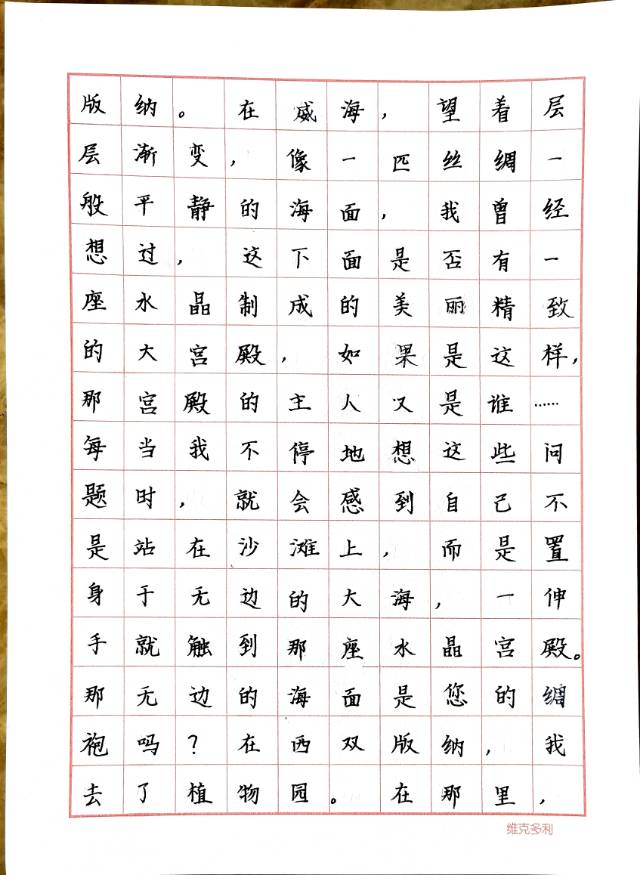 版纳。在威海，望着层
层渐变，像一匹丝绸一
般平静的海面，我曾经
想过，这下面是否有一
座水晶制成的美丽精致
的大宫殿，如果是这样，
那宫殿的主人又是谁……
每当我不停地想这些问
题时，就会感到自己不
是站在沙滩上，而是置
身于无边的大海，一伸
手就触到那座水晶宫殿。
那无边的海面是您的绸
袍吗？在西双版纳，我
去了植物园。在那里，
维克多利